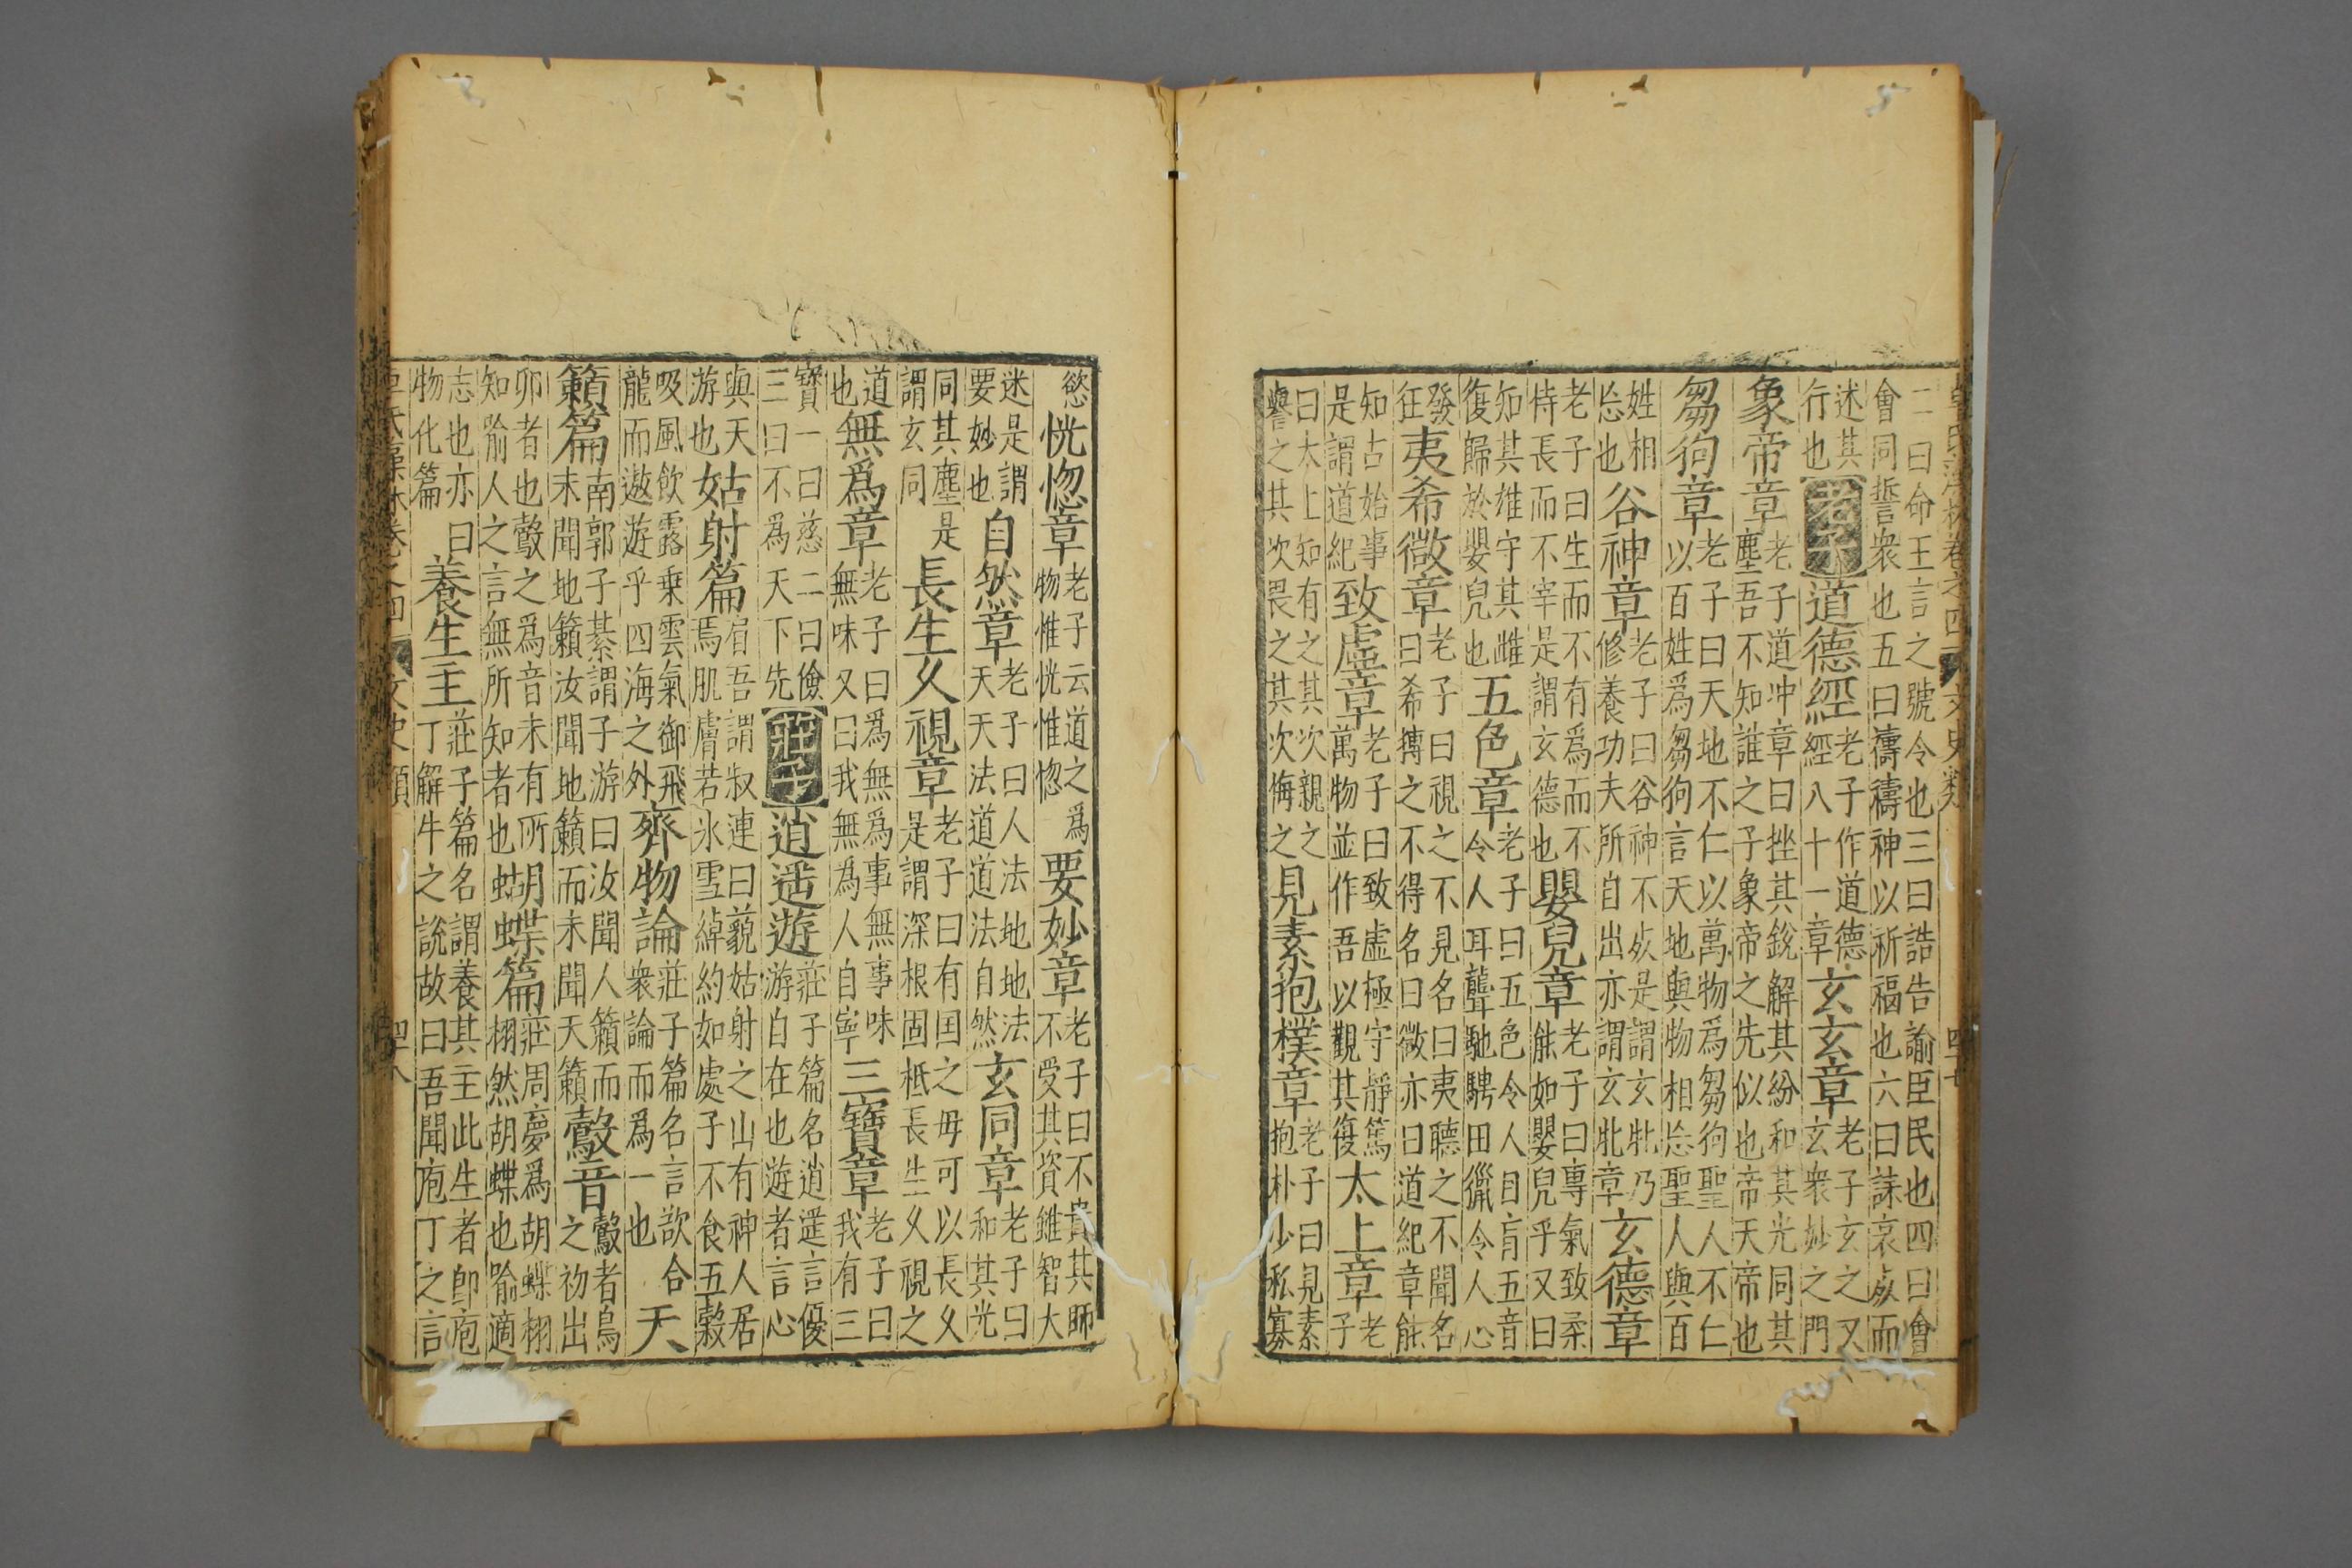 卓氏藻林卷之四 文史類 四十七
二曰命王言之號令也三曰誥告諭臣民也四曰會會同誓衆也五曰禱禱神以祈福也六曰誄哀死而
述其行也 老子 道德經老子作道德經八十一章玄玄章老子玄之又玄衆妙之門
象帝章老子道冲章曰挫其銳解其紛和其光同其塵吾不知誰之子象帝之先似也帝天帝也
芻狗章老子曰天地不仁以萬物爲芻狗聖人不仁以百姓爲芻狗言天地與物相忘聖人與百
姓相忘也谷神章老子曰谷神不死是謂玄牝乃修養功夫所自出亦謂玄牝章玄德章
老子曰生而不有爲而不恃長而不宰是謂玄德也嬰兒章老子曰專氣致柔能如嬰兒乎又曰
知其雄守其雌復歸於嬰兒也五色章老子曰五色令人目盲五音令人耳聾馳騁田獵令人心
發狂夷希微章老子曰視之不見名曰夷聽之不聞名曰希搏之不得名曰微亦曰道紀章能
知古始事是謂道紀致虛章老子曰致虛極守靜篤萬物並作吾以觀其復太上章老子
曰太上知有之其次親之譽之其次畏之其次侮之見素抱樸章老子曰見素抱朴少私寡
慾恍惚章老子云道之爲物惟恍惟惚要妙章老子曰不貴其師不受其資雖智大
迷是謂要妙也自然章老子曰人法地地法天天法道道法自然玄同章老子曰和其光
同其塵是謂玄同長生久視章老子曰有囯之母可以長久是謂深根固柢長生久視之
道也無爲章老子曰爲無爲事無事味無味又曰我無爲人自寧三寶章老子曰我有三
寶一曰慈二曰儉三曰不爲天下先 莊子 逍遥遊莊子篇名逍遥言優游自在也遊者言心
與天游也姑射篇肩吾謂叔連曰藐姑射之山有神人居焉肌膚若氷雪綽約如處子不食五穀
吸風飲露乗雲氣御飛龍而遨遊乎四海之外齊物論莊子篇名言欲合衆論而爲一也天
籟篇南郭子綦謂子游曰汝聞人籟而未聞地籟汝聞地籟而未聞天籟鷇音鷇者鳥之初出
卵者也鷇之爲音未有所知喻人之言無所知者也蝴蝶篇莊周夢爲胡蝶栩栩然胡蝶也喻適
志也亦曰物化篇養生主莊子篇名謂養其主此生者即庖丁解牛之說故曰吾聞庖丁之言
卓氏藻林卷之四 文史類 四十八